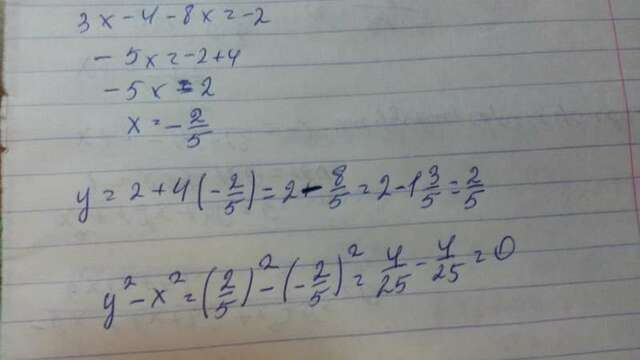 3x - 4 - 8x = -2
- 5x = -2 + 4
- 5x = 2
x = - 2/5
y = 2 + 4 (- 2/5) = 2 - 8/5 = 2 - 1 3/5 = 2/5
y² - x² = (2/5)² - (- 2/5)² = 4/25 - 4/25 = 0